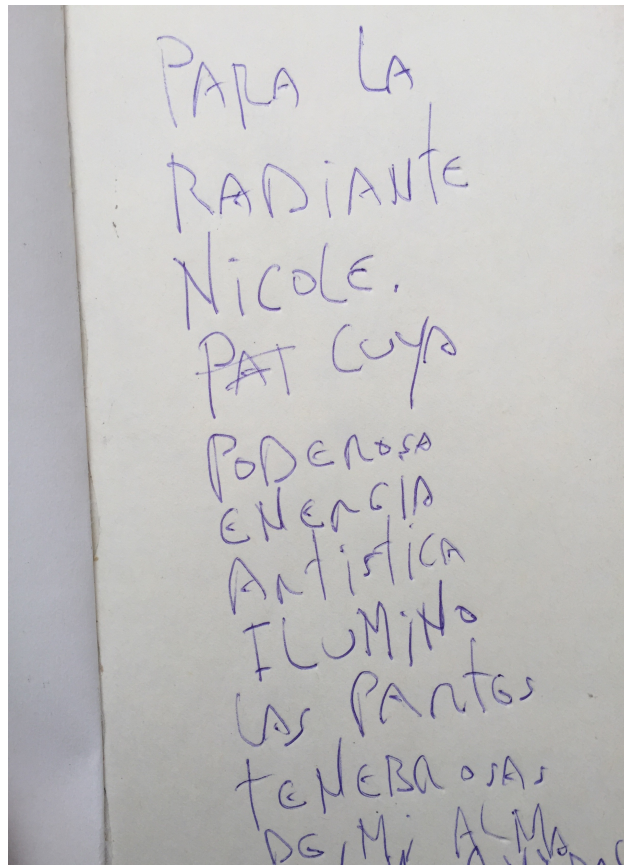 PARA LA
RADiANTE
NiCOLE.
PAT CUYA
PODEROSA
ENERGIA
ARTiSTiCA
ILUMiNO
LAS PARTES
TENEBROSAS
DE Mi ALMA